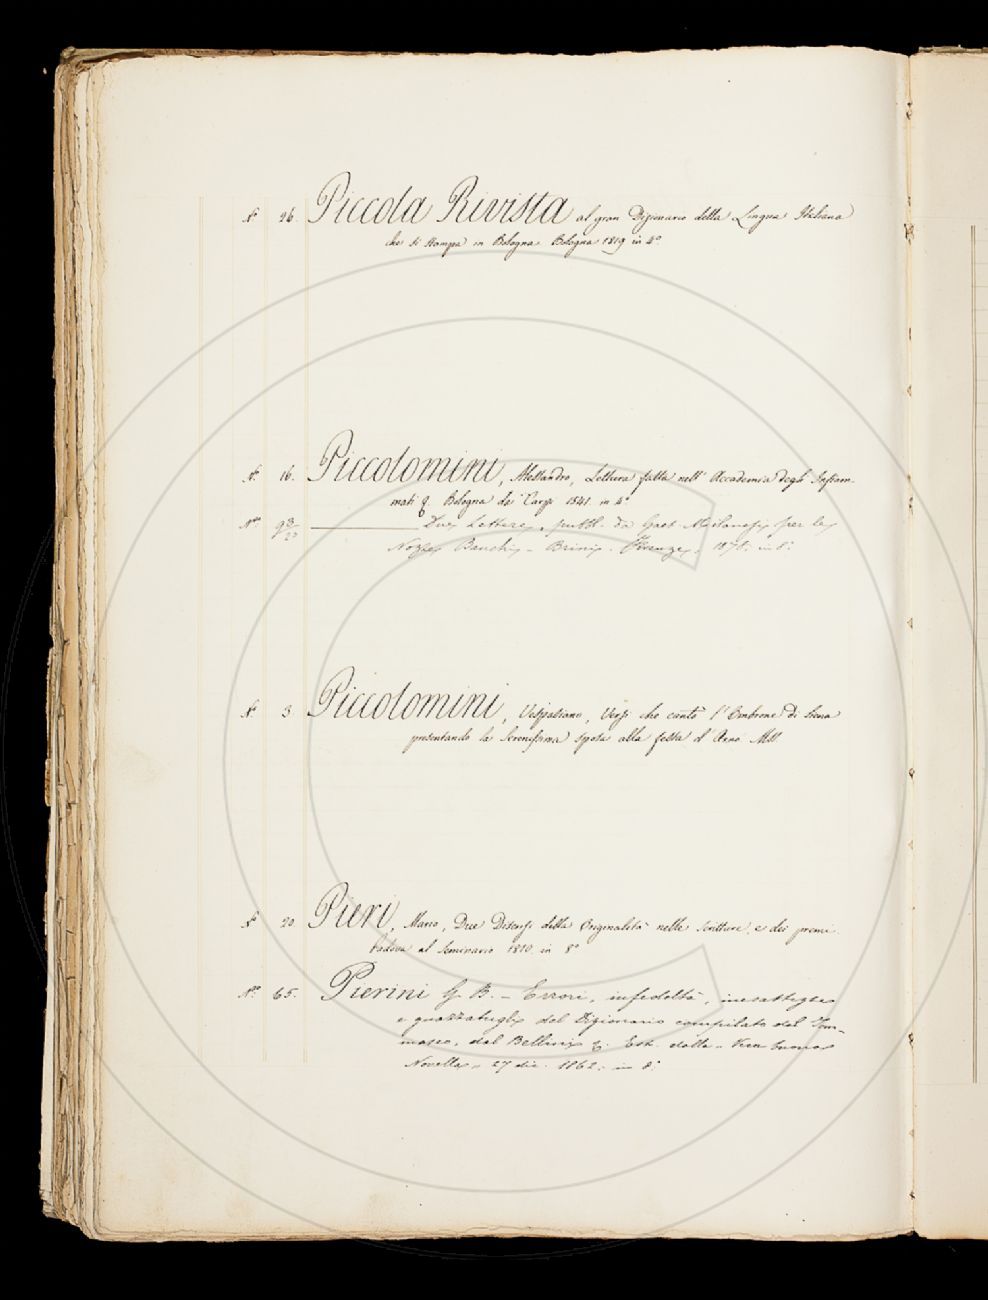 N.° 26. Piccola Rivista al gran Dizionario della Lingua Italiana
che si stampa in Bologna. Bologna 1819 in 4.°
N.° 16. Piccolomini, Alessandro, Lettura fatta nell' Accademia degli Infiam-
mati &. Bologna 1541. in 4.°
N.° Due Lettere, pubbl. da Gaet. Milanesi per le
Nozze Bianchi - Brini. Firenze, in 8.°
N.° 3 Piccolomini, Vespasiano, Versi che cantò l' Ombrone di Siena
presentando la Serenissima sposa alla festa d' Arno. MSS.
N.° 20 Pieri, Mario, Due Discorsi della Originalità nelle scritture, e dei premi.
Padova al Seminario 1810. in 8.°
N.° 65. Pierini G. B. - Errori, infedeltà, inesattezze
e guazzabugli del Dizionario compilato dal Tom-
maseo, dal Bellini &. Est. dalla - Vera buona
Novella, 27 dic. 1862. in 8.°